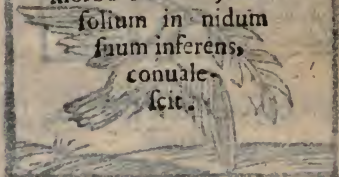 ſolium in nidum
ſuum inferens,
conuale-
ſcit.